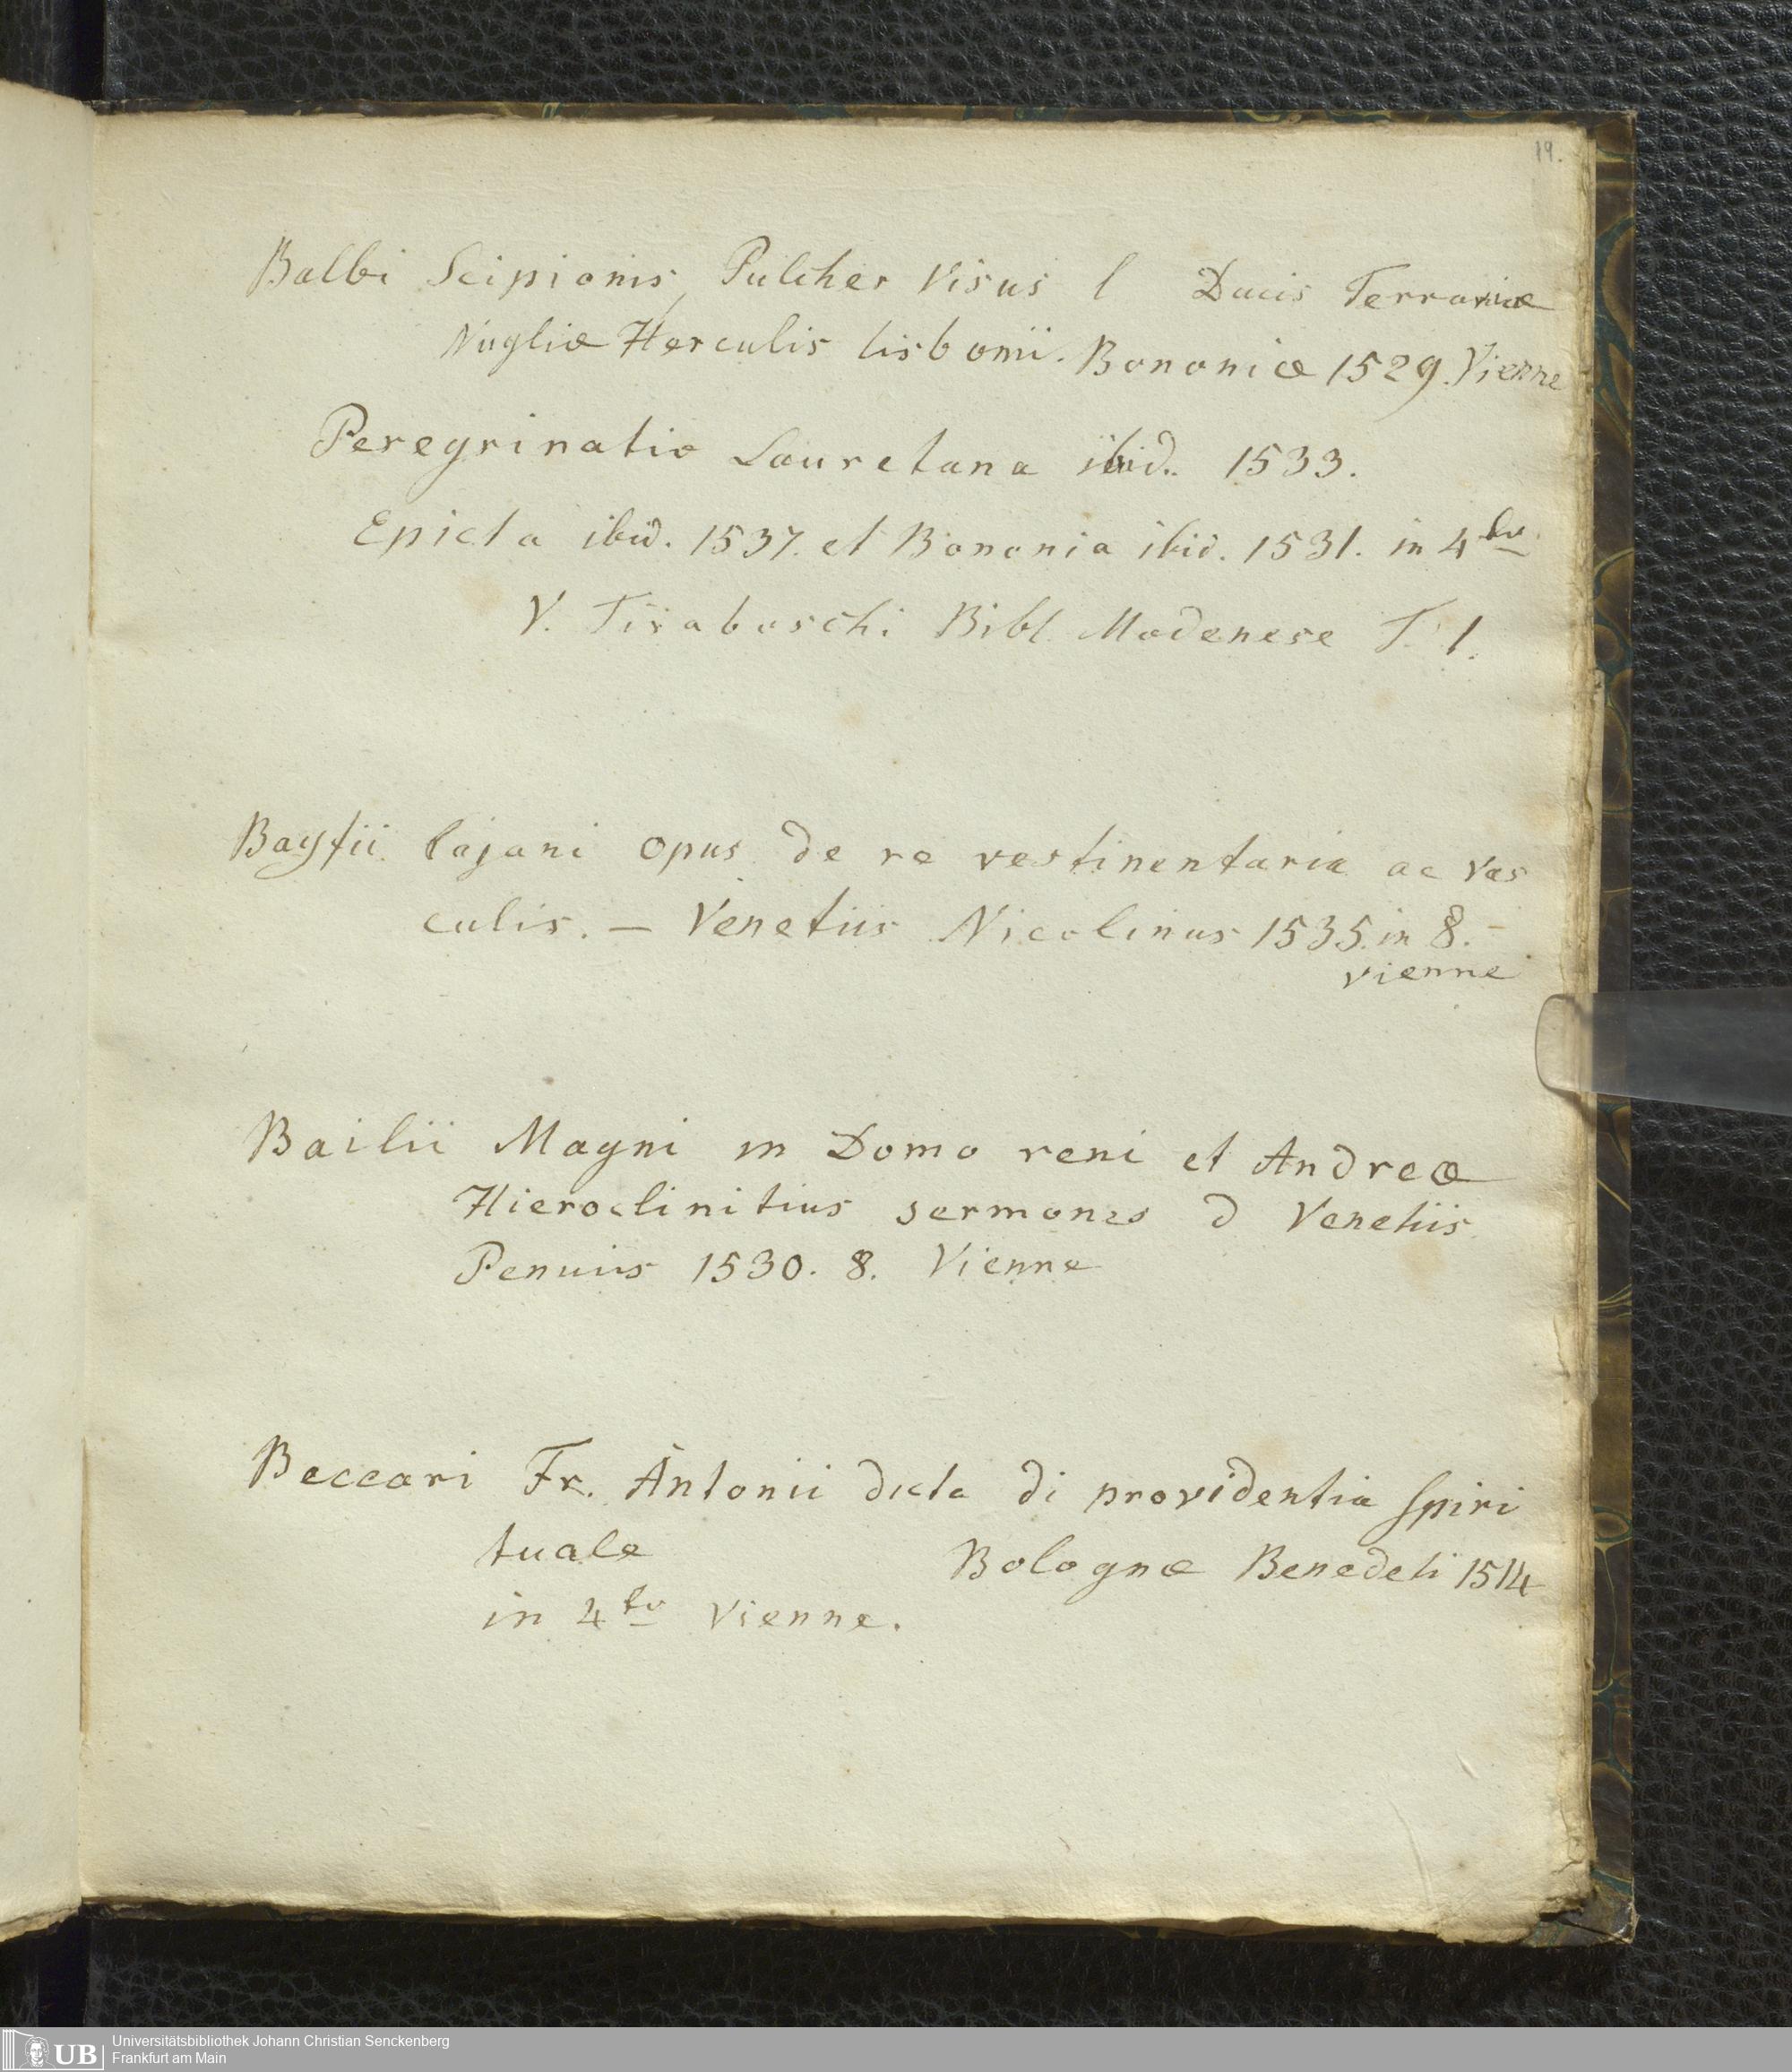 19.
Balbi Scipionis, Pulcher Visus l Ducis Ferrariæ
Nugliæ Herculis lisbonii. Bononiæ 1529. Vienne
Peregrinatio Lauretana ibid. 1533.
Epicta ibid. 1537. et Bononia ibid. 1531. in 4to
V. Tiraboschi Bibl. Modenese T. 1.
Bayfii lajani opus de re vestinentaria ac vas
culis. — Venetiis Nicolinus 1535. in 8. –
vienne
Bailii Magni in Domo reni et Andreæ
Hieroclinitius sermones d Venetiis
Penuiis 1530. 8. Vienne
Beccari Fr. Antonii dicta di providentia spiri
tuale Bolognæ Benedeti 1514
in 4to Vienne.
UB Universitätsbibliothek Johann Christian Senckenberg
Frankfurt am Main